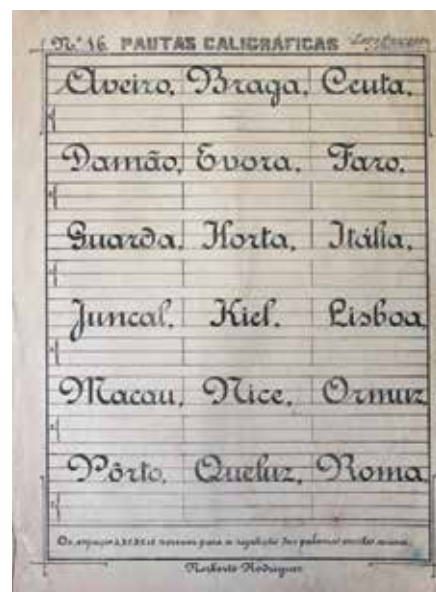 N.º 16 PAUTAS CALIGRÁFICAS
Aveiro, Braga, Ceuta,
Damão, Evora, Faro,
Guarda, Horta, Itália,
Juncal, Kiel, Lisboa,
Macau, Nice, Ormuz
Pôrto, Queluz, Roma
Os espaços servem para a repetição das palavras
Norberto Rodrigues